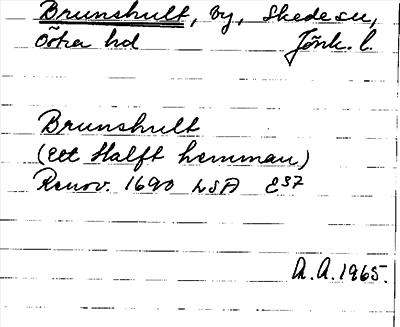 Brunshult, by, Skede sn,
Östra hd Jönk. l.
Brunshult
(ett Halft hemman)
Renov. 1690 LSA E37
A.A. 1965.